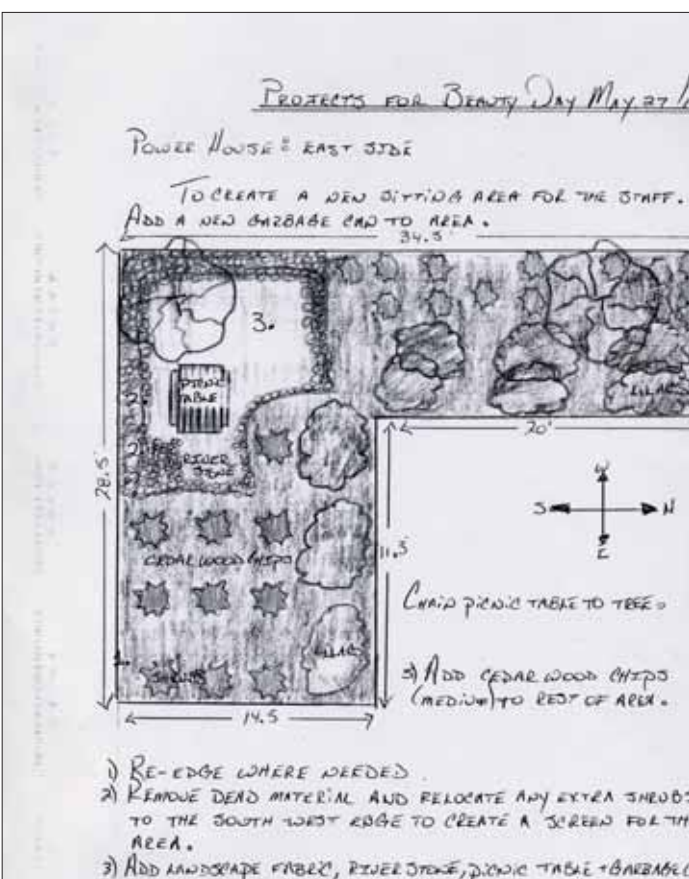 PROJECTS FOR BEAUTY DAY MAY 27
POWER HOUSE: EAST SIDE
TO CREATE A NEW SITTING AREA FOR THE STAFF.
ADD A NEW GARBAGE CAN TO AREA.
34.5'
3.
PICNIC
TABLE
RIVER
STONE
LILACS
20'
28.5'
W
S N
E
11.5
CEDAR WOOD CHIPS
CHAIN PICNIC TABLE TO TREE.
LILAC
1.
SHRUBS
5) ADD CEDAR WOOD CHIPS
(MEDIUM) TO REST OF AREA.
14.5
1) RE-EDGE WHERE NEEDED
2) REMOVE DEAD MATERIAL AND RELOCATE ANY EXTRA SHRUBS
TO THE SOUTH WEST EDGE TO CREATE A SCREEN FOR TH
AREA.
3) ADD LANDSCAPE FABRIC, RIVER STONE, PICNIC TABLE + GARBAGE C